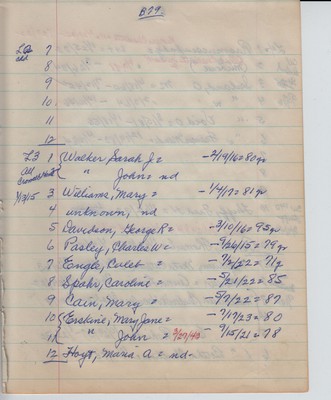 B29.
7
8
9
10
11
12
L3 1 Walker Sarah J =  - 2/19/16 = 80 yr
2 " John = nd
1/13/15 3 Williams, Mary = - 1/4/17 = 81 yr
4 unknown, nd
5 Davidson, George R = - 3/10/16 = 95 yr
6 Pasley, Charles W = - 9/26/15 = 79 yr
7 Engle, Caleb = - 7/2/22 = 71 y
8 Spohr, Caroline = - 5/21/22 = 85
9 Cain, Mary = - 5/7/22 = 87
10 Erskine, Mary Jane = - 7/17/23 = 80
11 " John = 9/27/43 - 9/15/21 = 78
12 Hoyt, Maria A = nd -